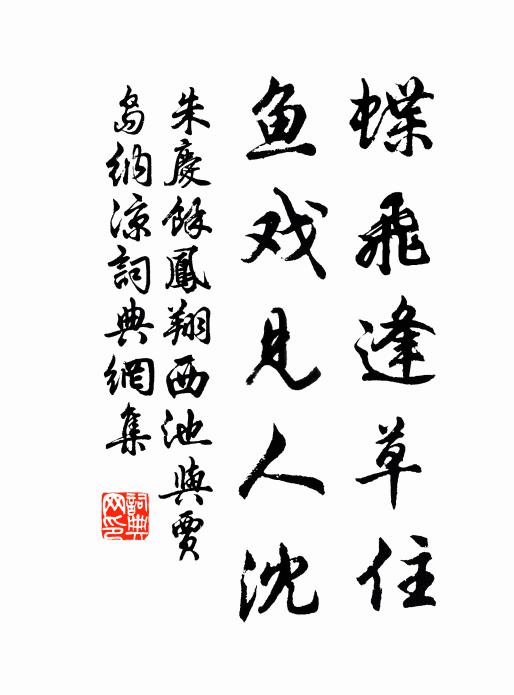 蝶飛逢草住
鱼戏見人沈
朱慶餘鳳翔西池與賈
島納凉詞典網集
詞典网印